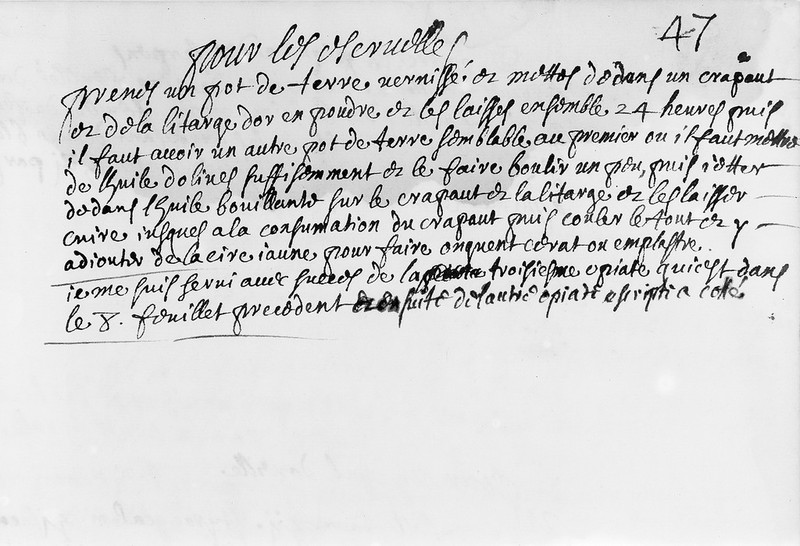 47
pour les escruelles
prenes un pot de terre vernissé et mettes dedans un crapaut
et de la litarge dor en poudre et les laisses ensemble 24 heures puis
il faut avoir un autre pot de terre semblable au premier ou il faut mettre
de lhuile dolives suffisemment et le faire boulir un peu, puis ietter
dedans lhuile bouillante sur le crapaut et la litarge et les laisser
cuire iusques a la consumation du crapaut puis couler le tout et y
adiouter de la cire iaune pour faire onguent cerat ou emplastre.
ie me suis servi avec succes de la troisiesme opiate qui est dans
le 8. feuillet precedent et ensuite de lautre opiate escripte a costé